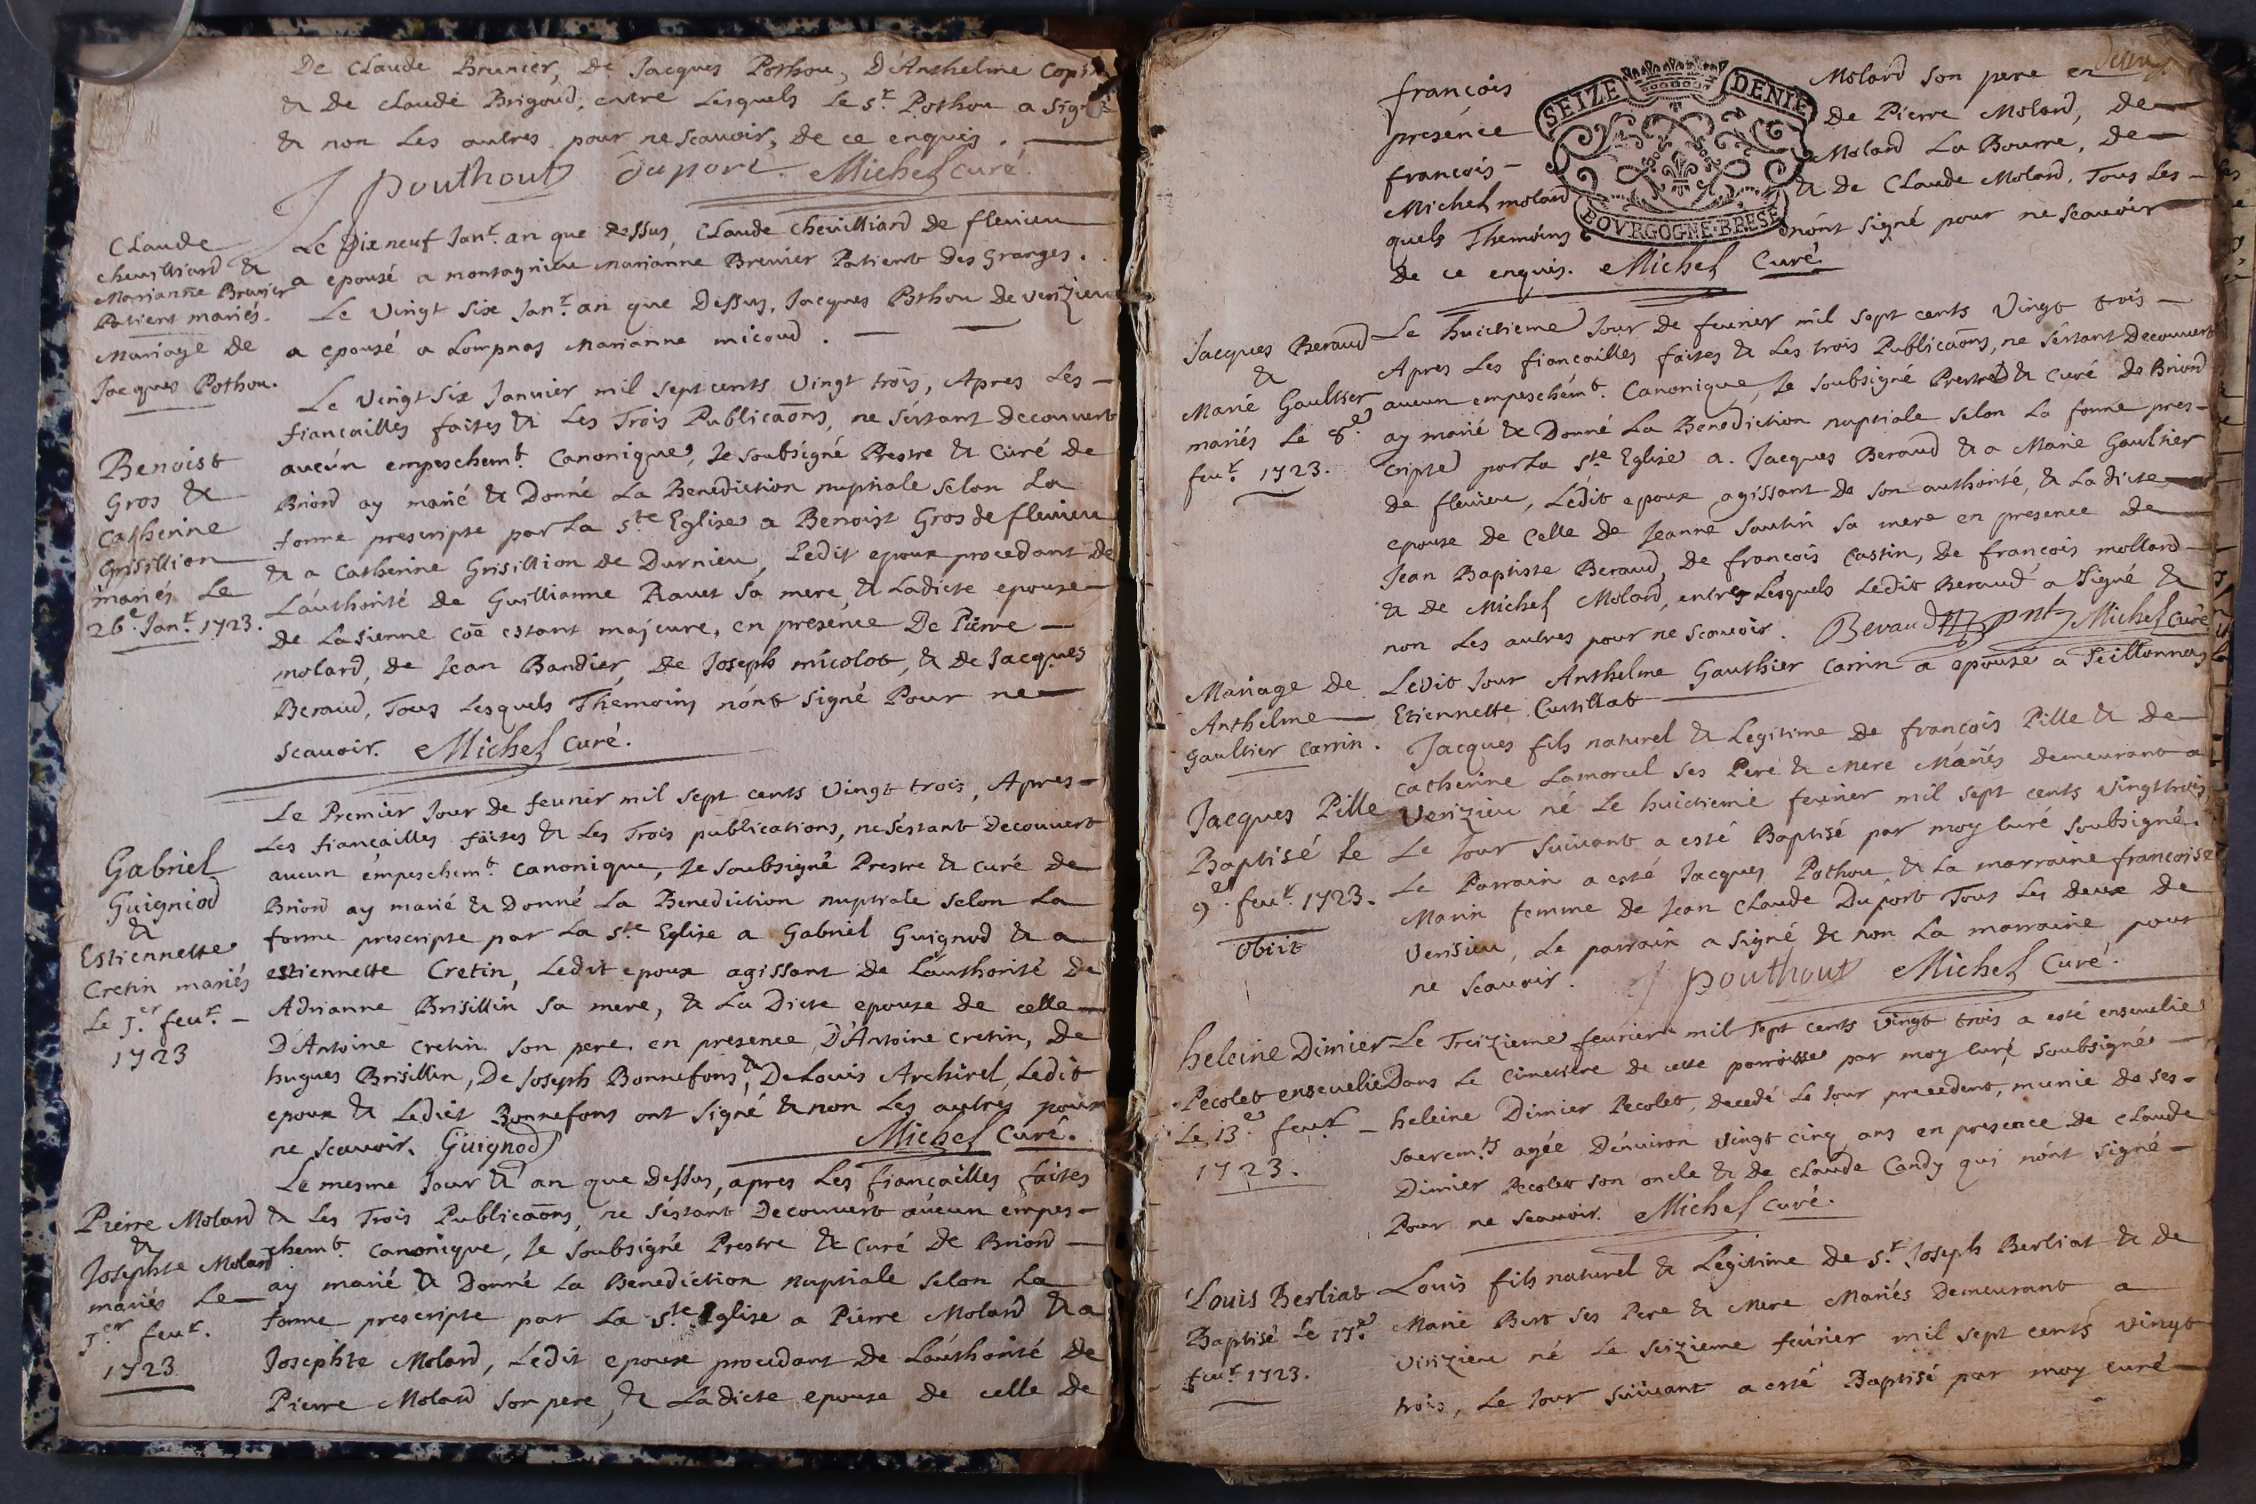 De Claude Brunier, De Jacques Pothou, D'Anthelme
& De Claude Brigoud, entre Lesquels Le Sr. Pothou a Signé
& non Les autres pour ne Scauoir, De ce enquis.
J pouthout Duport. Michel Curé.
Claude
chevilliard &
Marianne Brunier
Patient mariés.
Le Dixneuf Janr. an que Dessus, Claude chevilliard de fleuieu
a epousé a montagnieu Marianne Brunier Patient Des Granges.
Mariage De
Jacques Pothou.
Le Vingt Six Janr. an que Dessus, Jacques Pothou De verizieu
a epousé a Lompnas Marianne micoud.
Benoist
Gros &
Catherine
Grisillion
mariés Le
26e. Janr. 1723.
Le Vingt Six Januier mil sept cents Vingt trois, Apres Les
fiancailles faites & Les Trois Publicaons, ne s'estant Decouuert
aucun empeschemt. Canonique, Je Soubsigné Prestre & Curé de
Briord ay marié & Donné La Benediction nuptiale Selon La
forme prescripte par La Ste Eglise a Benoist Gros de fleuieu
& a Catherine Grisillion De Durnieu, Ledit epoux procedant De
L'authorité De Guillianne Rauet Sa mere, & Ladicte epouse
De La Sienne coe estant majeure, en presence De Pierre
molard, de Jean Bandier, De Joseph micolot, & De Jacques
Beraud, Tous Lesquels Themoins n'ont Signé Pour ne
Scauoir. Michel Curé.
Gabriel
Guigniod
&
Estiennette
Cretin mariés
Le 1er feur.
1723
Le Premier Jour de feurier mil Sept cents Vingt trois, Apres
Les fiançailles faites & Les Trois publications, ne S'estant Decouuert
aucun empeschemt. canonique, Je Soubsigné Prestre & Curé De
Briord ay marié & Donné La Benediction nuptiale Selon La
forme prescripte par La Ste. Eglise a Gabriel Guignod & a
estiennette Cretin, Ledit epoux agissant De L'authorité De
Adrianne Brisillin Sa mere, & La Dicte epouse De celle
D'Antoine Cretin Son pere, en presence D'Antoine Cretin, De
hugues Brisillin, De Joseph Bonnefons, & De Louis Archirel, Ledit
epoux & Ledict Bonnefons ont Signé & non Les autres pour
ne Scauoir. Guignod Michel Curé.
Pierre Molard
&
Josephte Molard
mariés Le
1er feur.
1723
Le mesme Jour & an que Dessus, apres Les fiançailles faites
& Les Trois Publicaons, ne S'estant Decouuert aucun empes-
chemt. Canonique, Je Soubsigné Prestre & Curé De Briord
ay marié & Donné La Benediction nuptiale Selon La
forme prescripte par La Ste. Eglise a Pierre Molard & a
Josephte Molard, Ledit epoux procedant De L'authorité De
Pierre Molard Son pere, & Ladicte epouse De celle De
françois Molard Son pere en
presence De Pierre Molard, De
françois Molard La Bourre, De
Michel molard & De Claude Molard, Tous Les
quels Themoins n'ont Signé pour ne Scauoir
De ce enquis. Michel Curé
SEIZE DENIE
BOVRGOGNE·BRESE
Jacques Beraud
&
Marie Gaultier
mariés Le 8e
feur. 1723.
Le huictieme Jour De feurier mil Sept cents Vingt trois
Apres Les fiancailles faites & Les trois Publicaons, ne S'estant Decouuert
aucun empeschemt. Canonique, Je Soubsigné Prestre & Curé De Briord
ay marié & Donné La Benediction nuptiale Selon La forme pres-
cripte par La Ste Eglise a Jacques Beraud & a Marie Gaultier
de fleuieu, Ledit epoux agissant De Son authorité, & La dicte
epouse De Celle De Jeanne Soutin Sa mere en presence De
Jean Baptiste Beraud, De francois Castin, De francois mollard
& De Michel Molard, entre Lesquels Ledit Beraud a Signé &
non Les autres pour ne Scauoir. Beraud pnt Michel Curé
Mariage De
Anthelme
Gaultier Carrin.
Ledit Jour Anthelme Gauthier Carrin a epousé a Seillonnas
Etiennette Curtillat
Jacques Pille
Baptisé Le
9e. feur. 1723.
obiit
Jacques fils naturel & Legitime De François Pille & De
Catherine Lamorcel Ses Pere & Mere Mariés Demeurant a
Verizieu né Le huictieme feurier mil Sept cents vingt trois
Le Jour Suiuant a esté Baptisé par moy Curé Soubsigné.
Le Parrain a esté Jacques Pothou & La marraine francoise
Marin femme De Jean Claude Duport Tous Les deux De
Verisieu, Le parrain a Signé & non La marraine pour
ne Scauoir. J pouthout Michel Curé.
heleine Dimier
Pecolet enseuelie
Le 13e feur.
1723.
Le Treizieme feurier mil Sept cents vingt trois a esté enseuelie
Dans Le Cimetiere De cette parroisse par moy Curé Soubsigné
heleine Dimier Pecolet, Decedé Le Jour precedent, munie De Ses
Sacremts agée D'enuiron vingt cinq ans en presence De Claude
Dimier Pecolet Son oncle & De Claude Candy qui n'ont Signé
Pour ne Scauoir. Michel Curé.
Louis Berliat
Baptisé Le 17e
feur. 1723.
Louis fils naturel & Legitime De Sr. Joseph Berliat & De
Marie Bert Ses Pere & Mere Mariés Demeurant a
Virizieu né Le Seizieme feurier mil Sept cents vingt
trois, Le Jour Suiuant a esté Baptisé par moy Curé